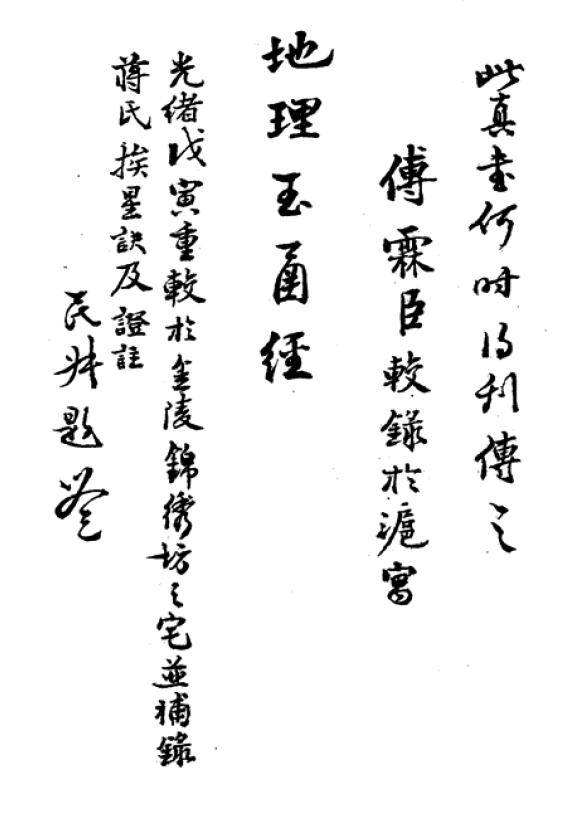 此真書何时得刊傳之
傅霖臣較錄於滬寓
地理玉函經
光緒戊寅重較於金陵錦繡坊之宅並補錄
蔣氏挨星訣及證註
題籤